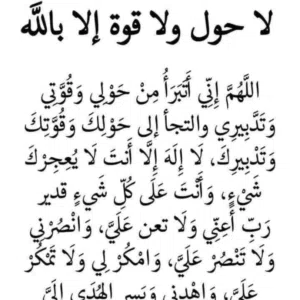 لا حول ولا قوة إلا بالله
اللهُمَّ إِنِّي أَتَبَرَأُ مِنْ حَوْلِي وَقُوَّتِي
وَتَدَّبِيرِي والتجأ إلى حَوْلِكَ وَقُوَّتِكَ
وَتَدْبِيرِكَ، لَا إِلَهَ إِلَّا أَنتَ لَا يُعجِزْكَ
شَيْءٍ، وَأَنْتَ عَلَى كُلِّ شَيءٍ قدير
رَبِّ أَعِنِّي وَلَا تعن عَلَيَّ، وَانْصُرْنِي
وَلَا تَنْصُرْ عَلَيَّ، وَامْكُرْ لِي وَلَا تَمْكُرْ
عَلَيَّ، وَاهْدِنِي وَيَسِرِ الهُدَى إِلَيَّ